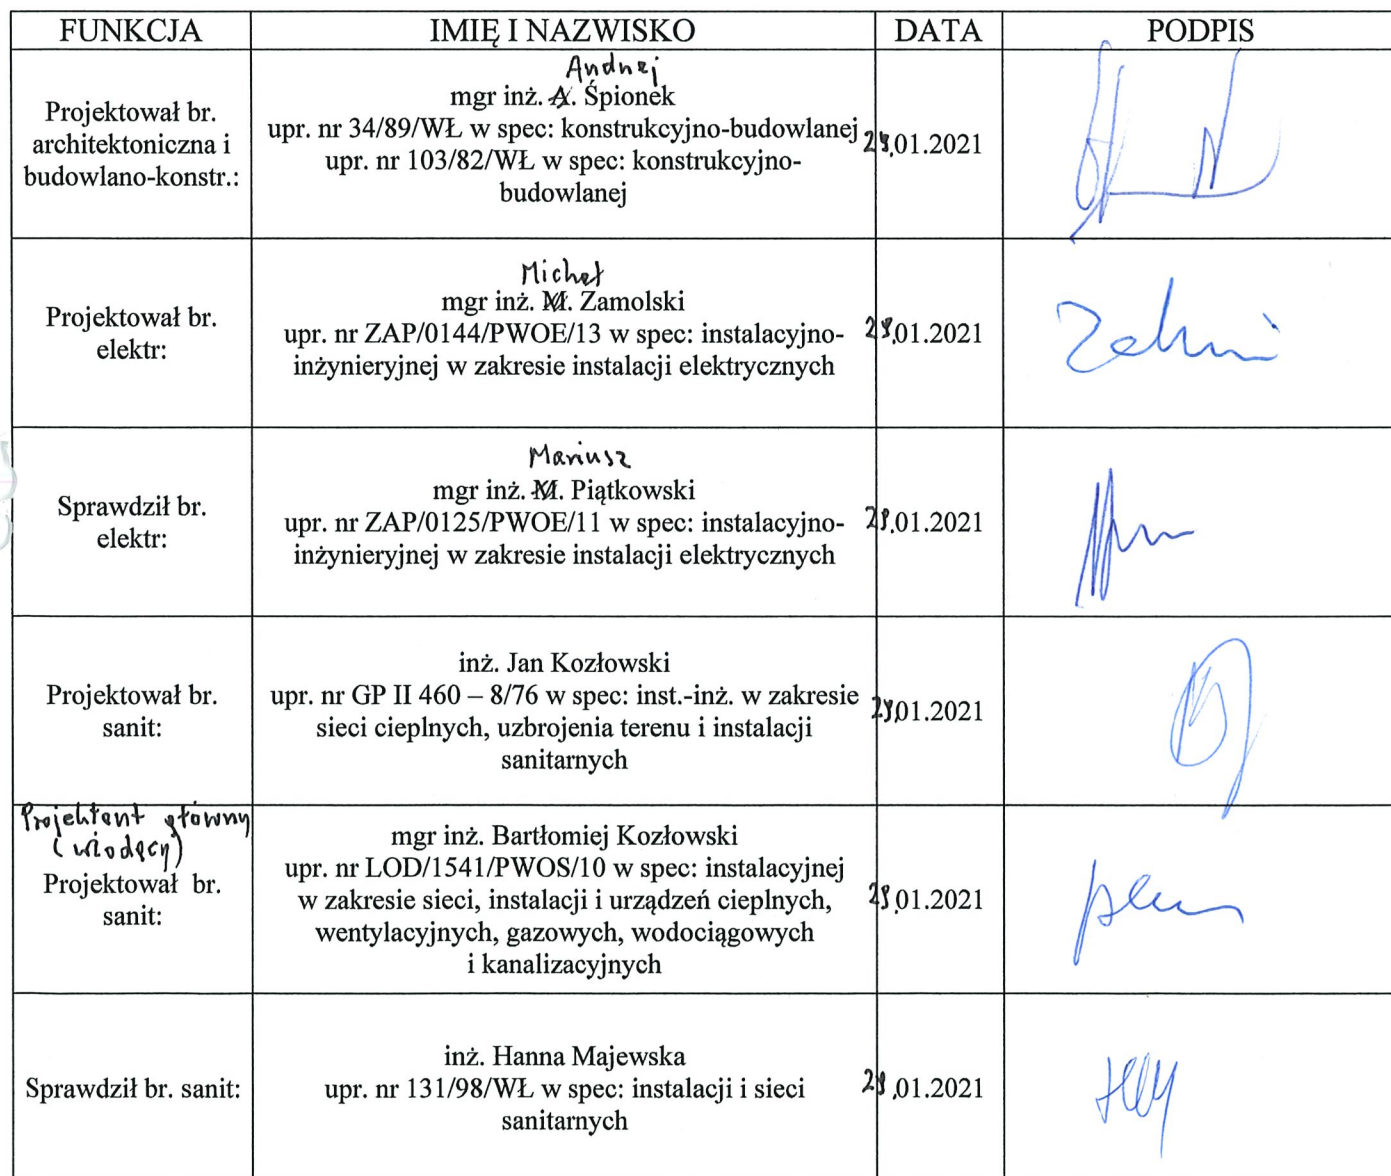 FUNKCJA IMIĘ I NAZWISKO DATA PODPIS
Andrzej
Projektował br.
architektoniczna i
budowlano-konstr.:
mgr inż. A. Śpionek
upr. nr 34/89/WŁ w spec: konstrukcyjno-budowlanej
upr. nr 103/82/WŁ w spec: konstrukcyjno-
budowlanej
.01.2021
Projektował br.
elektr:
Michał
mgr inż. M. Zamolski
upr. nr ZAP/0144/PWOE/13 w spec: instalacyjno-
inżynieryjnej w zakresie instalacji elektrycznych
.01.2021
Sprawdził br.
elektr:
Mariusz
mgr inż. M. Piątkowski
upr. nr ZAP/0125/PWOE/11 w spec: instalacyjno-
inżynieryjnej w zakresie instalacji elektrycznych
.01.2021
Projektował br.
sanit:
inż. Jan Kozłowski
upr. nr GP II 460 – 8/76 w spec: inst.-inż. w zakresie
sieci cieplnych, uzbrojenia terenu i instalacji
sanitarnych
.01.2021
Projektant główny
(wiodący)
Projektował br.
sanit:
mgr inż. Bartłomiej Kozłowski
upr. nr LOD/1541/PWOS/10 w spec: instalacyjnej
w zakresie sieci, instalacji i urządzeń cieplnych,
wentylacyjnych, gazowych, wodociągowych
i kanalizacyjnych
.01.2021
Sprawdził br. sanit:
inż. Hanna Majewska
upr. nr 131/98/WŁ w spec: instalacji i sieci
sanitarnych
.01.2021